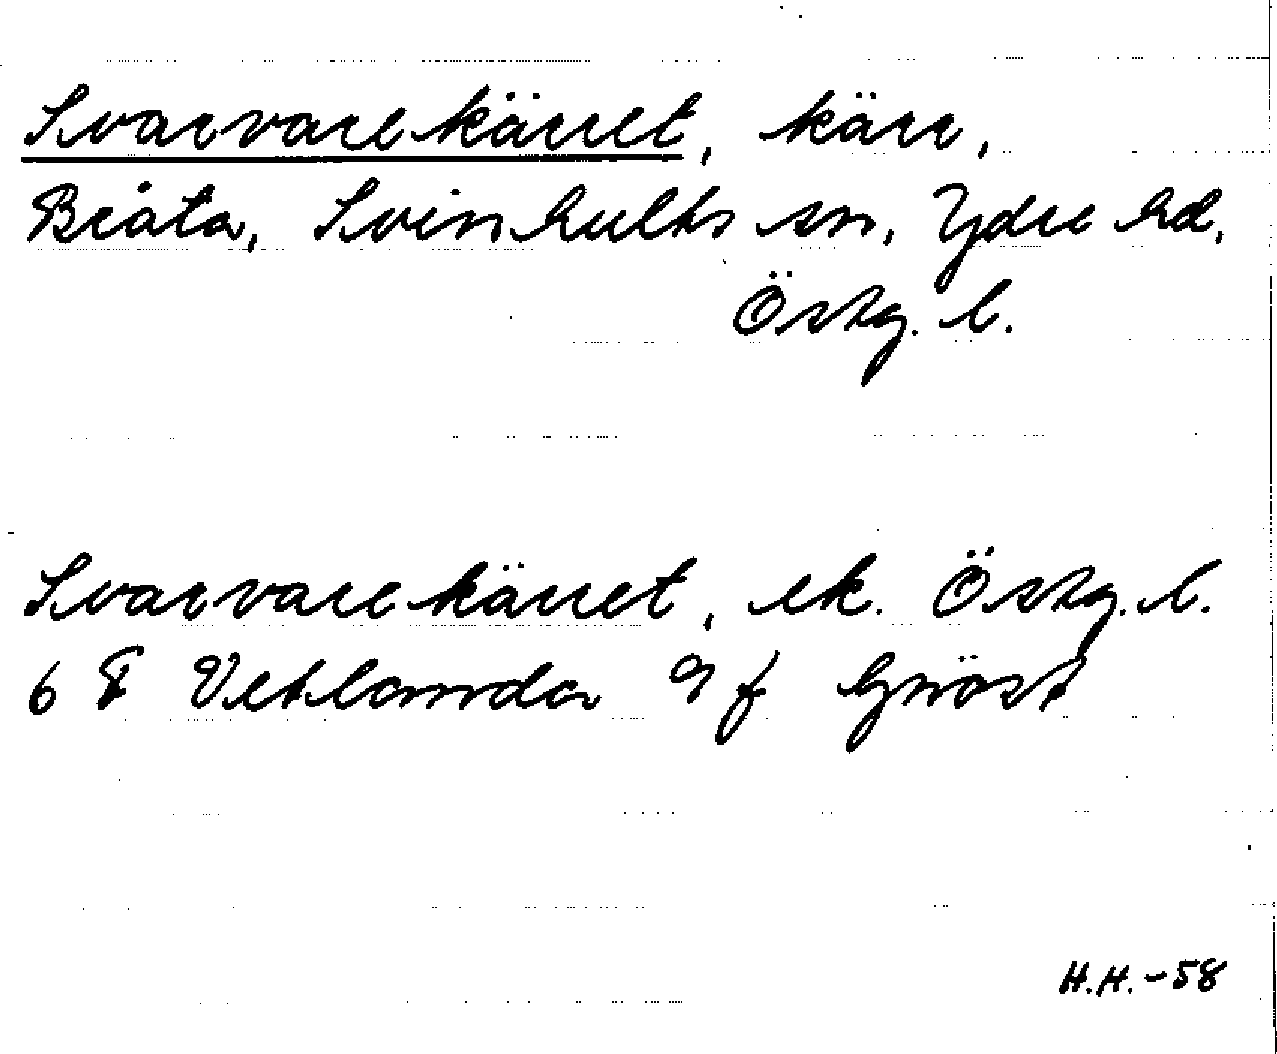 Svarvarekärret, kärr,
Bråta, Svinhults sn, Ydre hd,
Östg. l.
Svarvarekärret, ek. Östg. l.
6 F Vetlanda 9 f Gnöst
H.H. -58